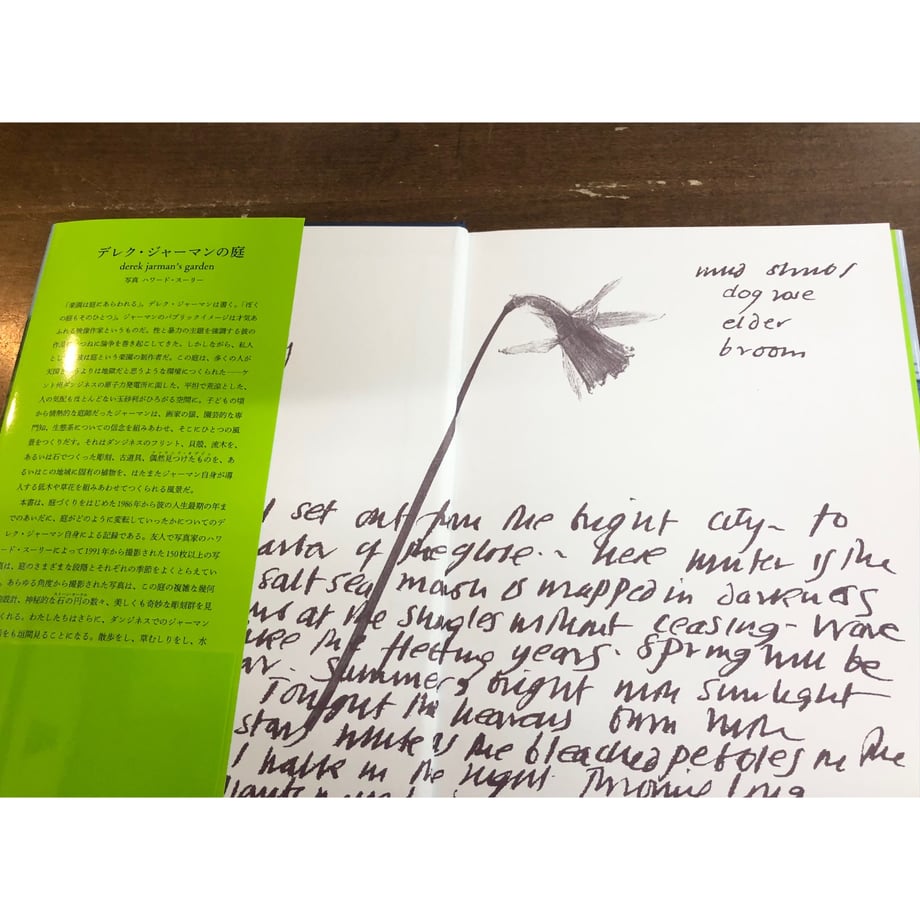 デレク・ジャーマンの庭
derek jarman's garden
写真 ハワード・スーリー
「楽園は庭にあらわれる」。デレク・ジャーマンは書く。「ぼく
の庭もそのひとつ」。ジャーマンのパブリックイメージは才気あ
ふれる映像作家というものだ。性と暴力の主題を強調する彼の
作品はつねに論争を巻き起こしてきた。しかしながら、私人
としての彼は庭という楽園の制作者だ。この庭は、多くの人が
天国というよりは地獄だと思うような環境につくられた――ケ
ント州ダンジネスの原子力発電所に面した、平坦で荒涼とした、
人の気配もほとんどない玉砂利がひろがる空間に。子どもの頃
から情熱的な庭師だったジャーマンは、画家の眼、園芸的な専
門知、生態系についての信念を組みあわせ、そこにひとつの風
景をつくりだす。それはダンジネスのフリント、貝殻、流木を、
あるいは石でつくった彫刻、古道具、偶然見つけたものを、あ
るいはこの地域に固有の植物を、はたまたジャーマン自身が導
入する低木や草花を組みあわせてつくられる風景だ。
本書は、庭づくりをはじめた1986年から彼の人生最期の年ま
でのあいだに、庭がどのように変転していったかについてのデ
レク・ジャーマン自身による記録である。友人で写真家のハワ
ード・スーリーによって1991年から撮影された150枚以上の写
真は、庭のさまざまな段階とそれぞれの季節をよくとらえてい
る。あらゆる角度から撮影された写真は、この庭の複雑な幾何
的設計、神秘的な石の円の数々、美しくも奇妙な彫刻群を見
くれる。わたしたちはさらに、ダンジネスでのジャーマン
を垣間見ることになる。散歩をし、草むしりをし、水
dog rose
elder
broom
I set out from the bright city - to
of the globe - here winter is the
salt sea marsh is mapped in darkness
at the shingles without ceasing - wave
the fleeting years. Spring will be
Summers bright with sunlight
Tonight the heavens burn with
stars white as the bleached pebbles in the
I walk in the night